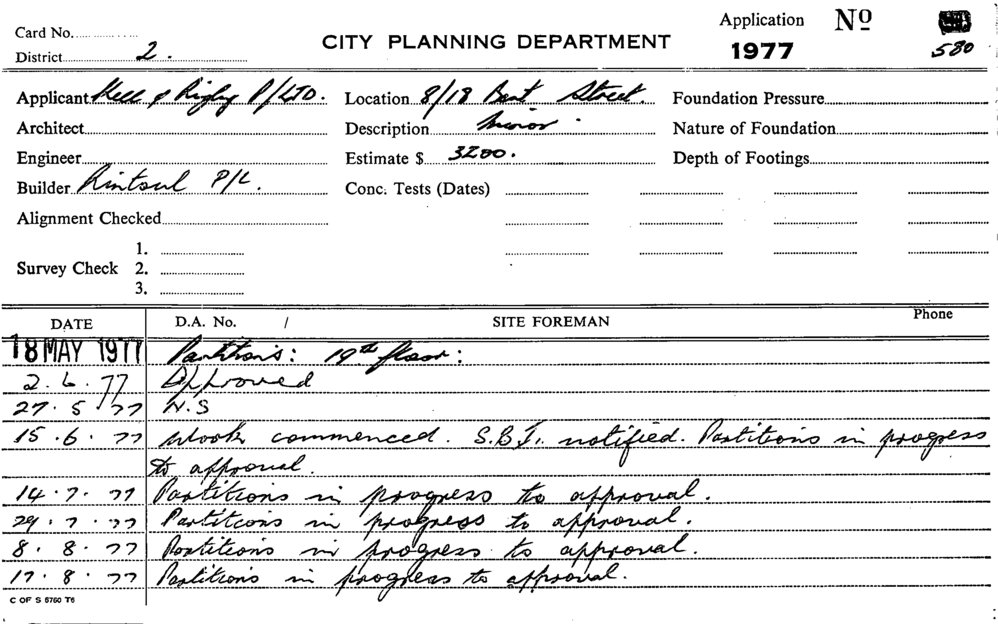 Card No.
District 2.
CITY PLANNING DEPARTMENT
Application
1977
Nº
580
Applicant Kell & Rigby P/LTD.
Location 8/18 Bent Street.
Foundation Pressure
Architect
Description Minor.
Nature of Foundation
Engineer
Estimate $ 3200.
Depth of Footings
Builder Rintoul P/L.
Conc. Tests (Dates)
Alignment Checked
Survey Check
1.
2.
3.
DATE D.A. No. / SITE FOREMAN Phone
18 MAY 1977 Partitions: 19th floor:
2. 6. 77 Approved
27. 5. 77 N.S
15. 6. 77 Work commenced. S.B.I. notified. Partitions in progress
to approval.
14. 7. 77 Partitions in progress to approval.
29. 7. 77 Partitions in progress to approval.
8. 8. 77 Partitions in progress to approval.
17. 8. 77 Partitions in progress to approval.
C OF S 5760 T6